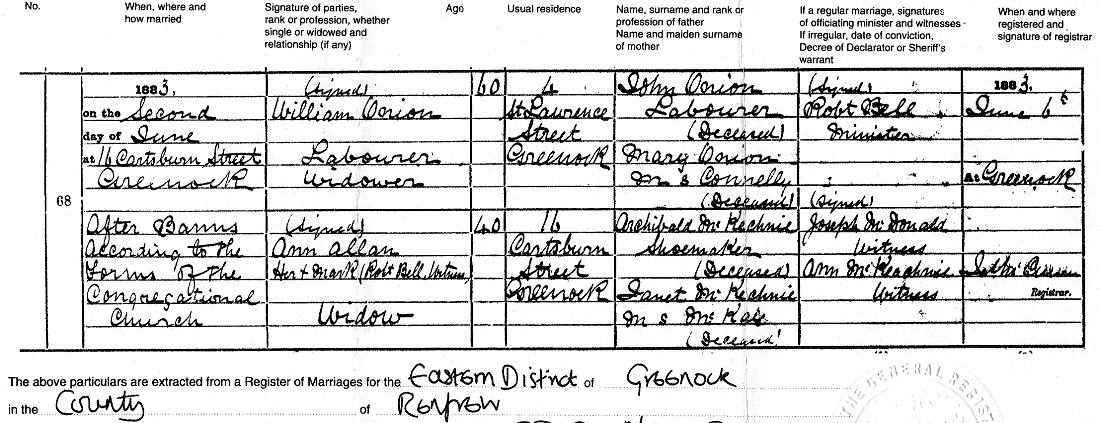 No.
When, where and
how married
Signature of parties,
rank or profession, whether
single or widowed and
relationship (if any)
Age
Usual residence
Name, surname and rank or
profession of father
Name and maiden surname
of mother
If a regular marriage, signatures
of officiating minister and witnesses
If irregular, date of conviction,
Decree of Declarator or Sheriff's
warrant
When and where
registered and
signature of registrar
68
1883,
on the Second
day of June
at 16 Cartsburn Street
Greenock
After Banns
According to the
Forms of the
Congregational
Church
(Signed)
William Onion
Labourer
Widower
(Signed)
Ann Allan
Her + Mark (Robt Bell, Witness)
Widow
60
40
4
St Lawrence
Street
Greenock
16
Cartsburn
Street
Greenock
John Onion
Labourer
(Deceased)
Mary Onion
m s Connelly
(Deceased)
Archibald McKechnie
Shoemaker
(Deceased)
Janet McKechnie
m s McKay
(Deceased)
(Signed)
Robt Bell
Minister
(Signed)
Joseph McDonald
Witness
Ann McKeachnie
Witness
1883,
June 6
At Greenock
Registrar.
The above particulars are extracted from a Register of Marriages for the Eastern District of Greenock
in the County of Renfrew
THE GENERAL REGIST